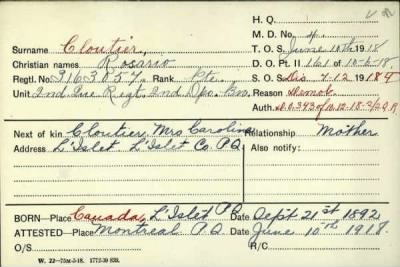 H. Q.
M. D. No. 4.
Surname Cloutier,
T. O. S. June 10th 1918
Christian names Rosario
D. O. Pt. II 161 of 10-6-18.
Regtl. No. 3163057. Rank Pte.
S. O. S. Dis 7-12 1918
Unit 2nd Que Regt. 2nd Dpo. Bn.
Reason Demob.
Auth.
Next of kin Cloutier, Mrs Caroline Relationship Mother
Address L'Islet L'Islet Co. P.Q. Also notify:
BORN—Place Canada, L'Islet P.Q. Date Sept 21st 1892
ATTESTED—Place Montreal P.Q. Date June 10th 1918.
O/S R/C
W. 22—75M-5-18. 1772-39 839.